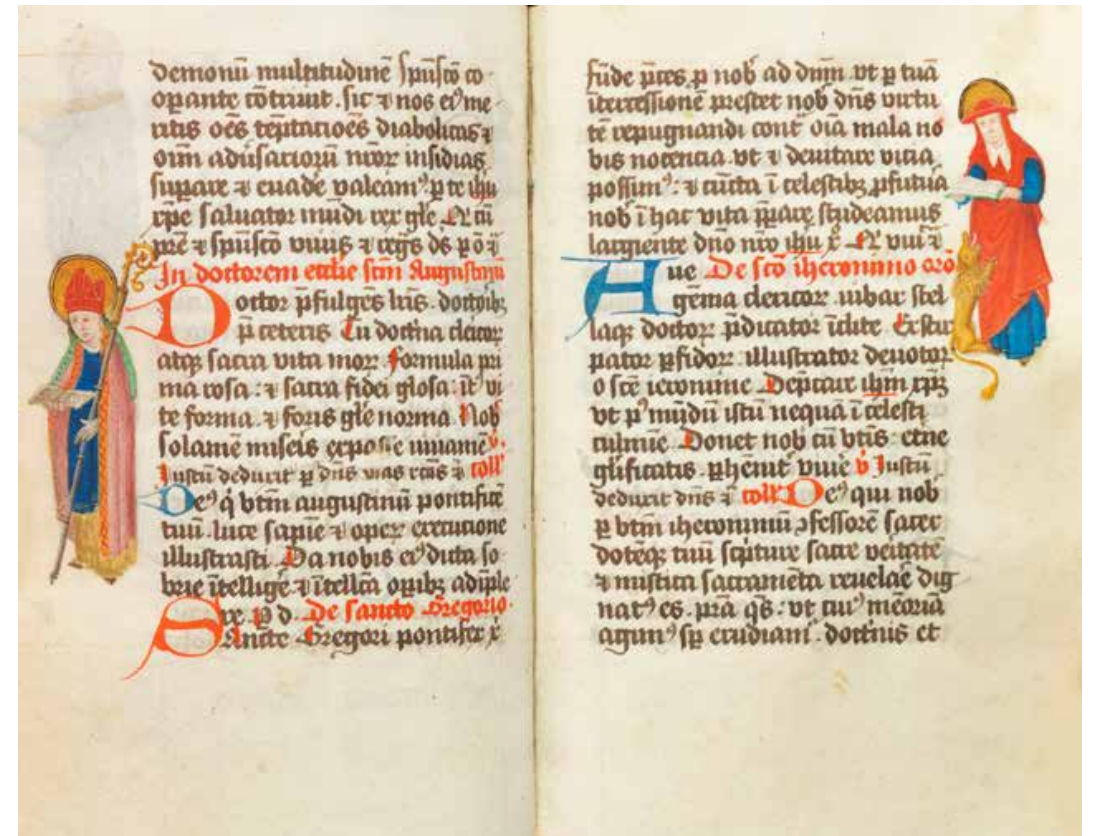 demonū multitudinē spūsc̄o co
opante cōtriuit. sic ⁊ nos eiꝰ me
ritis oēs tēptatiōes diabolicas ⁊
oīm adūsarioꝝ nr̄oꝝ insidias
supare ⁊ euadē valeamꝰ p te ihū
xpe saluator mūdi rex gl̄e Q cū
prē ⁊ spūsc̄o viuis ⁊ regn̄s ds̄
In doctorem ecclie sc̄m Augustinū
Doctor p̄fulgēs
p̄ ceteris Tu doctrīa clericoꝝ
atqꝫ sacra vita moꝝ formula pri
ma rosa: ⁊ sacra fidei glosa: vi
te forma. ⁊ foris gl̄e norma Nob̄
solamē
Iustū deduxit dn̄s vias ⁊ coll̄
Deꝰ q̄ btm̄ augustinū pontificē
tuū. luce sapīe ⁊ opeꝝ
illustrasti. Da nobis eiꝰ dicta so
brie ītelligē ⁊ ītellc̄a opibꝫ adīple
re. P d. De sancto Gregorio.
SAncte Gregori pontifex
fūde p̄ces p nob̄ ad dn̄m vt p tuā
ītercessionē prestet nob̄ dn̄s virtu
tē repugnandi cont̄ oīa mala no
bis nocencia. vt ⁊ deuitare vicia
possimꝰ: ⁊ cūcta ī celestibꝫ pfutura
nob̄ ī hac vita studeamus
largiente dn̄o nr̄o ihū x̄ Q viuit ⁊
Aue De sc̄o iheronimo orō
gēma clericoꝝ. iubar stel
laqꝫ doctoꝝ p̄dicator īclite Extir
pator pfidoꝝ: illustrator deuotoꝝ
o sc̄e ieronime Dep̄care ihm̄ xpm̄
vt pꝰ mūdū istū nequā ī celesti
culmīe Donet nob̄ cū etne
gl̄ificatis. phēnit̄ viuē v̄ Iustū
deduxit dn̄s ⁊ coll̄ Deꝰ qui nob̄
p btm̄ iheronimū ↄfessorē sacer
dotēqꝫ tuū sc̄pture sacre veritatē
⁊ mistica sacramēta reuelaē dig
natꝰ es. pr̄a qs̄: vt cuiꝰ mēoriā
agimꝰ sp̄ erudiam̄. doctnis et